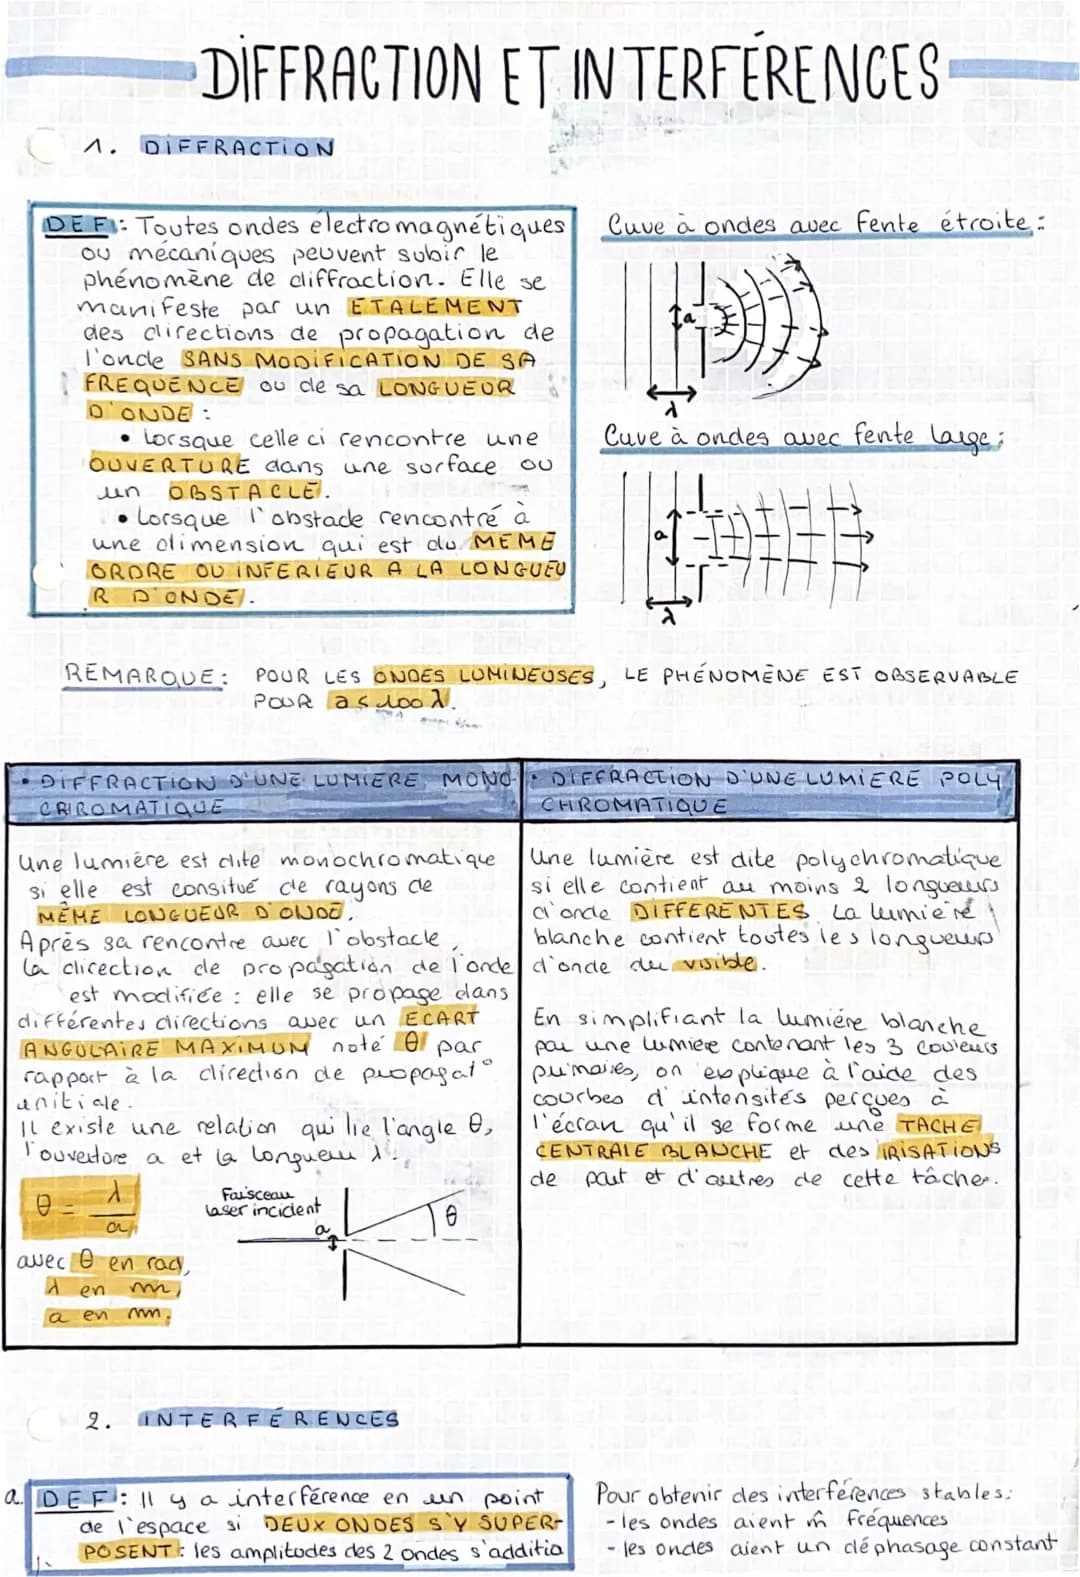 DIFFRACTION ET INTERFÉRENCES
1. DIFFRACTION
DEF : Toutes ondes électromagnétiques
ou mécaniques peuvent subir le
phénomène de diffraction. Elle se
manifeste par un ETALEMENT
des directions de propagation de
l'onde SANS MODIFICATION DE SA
FREQUENCE ou de sa LONGUEUR
D'ONDE :
• Lorsque celle ci rencontre une
OUVERTURE dans une surface ou
un OBSTACLE.
• Lorsque l'obstacle rencontré à
une dimension qui est du MEME
ORDRE OU INFERIEUR A LA LONGUEU
R D'ONDE.
Cuve à ondes avec fente étroite :
a
λ
Cuve à ondes avec fente large :
a
λ
REMARQUE : POUR LES ONDES LUMINEUSES, LE PHÉNOMÈNE EST OBSERVABLE
POUR a ≤ 100 λ.
• DIFFRACTION D'UNE LUMIERE MONO-
CHROMATIQUE
une lumière est dite monochromatique
si elle est consitué de rayons de
MÊME LONGUEUR D'ONDE.
Après sa rencontre avec l'obstacle,
la direction de propagation de l'onde
est modifiée : elle se propage dans
différentes directions avec un ECART
ANGULAIRE MAXIMUM noté θ par
rapport à la direction de propagat°
initiale.
Il existe une relation qui lie l'angle θ,
l'ouverture a et la longueur λ.
θ = λ / a
avec θ en rad,
λ en m,
a en m.
Faisceau
laser incident
a
θ
• DIFFRACTION D'UNE LUMIERE POLY
CHROMATIQUE
Une lumière est dite polychromatique
si elle contient au moins 2 longueurs
d'onde DIFFERENTES. La lumière
blanche contient toutes les longueurs
d'onde du visible.
En simplifiant la lumière blanche
par une lumière contenant les 3 couleurs
primaires, on explique à l'aide des
courbes d'intensités perçues à
l'écran qu'il se forme une TACHE
CENTRALE BLANCHE et des IRISATIONS
de part et d'autres de cette tâche.
2. INTERFÉRENCES
a. DEF : Il y a interférence en un point
de l'espace si DEUX ONDES S'Y SUPER-
POSENT : les amplitudes des 2 ondes s'additio
Pour obtenir des interférences stables :
- les ondes aient m̂ fréquences
- les ondes aient un déphasage constant